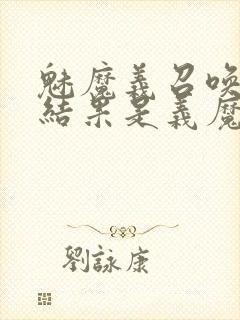 魅魔義召喚
結果是義魔
劉詠康